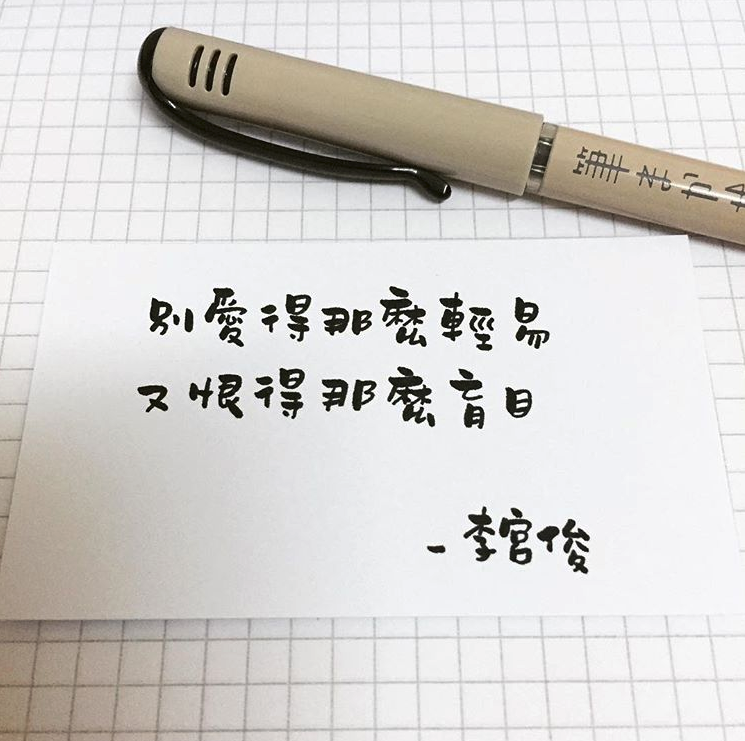 筆ネわ
別愛得那麼輕易
又恨得那麼盲目
- 李宮俊